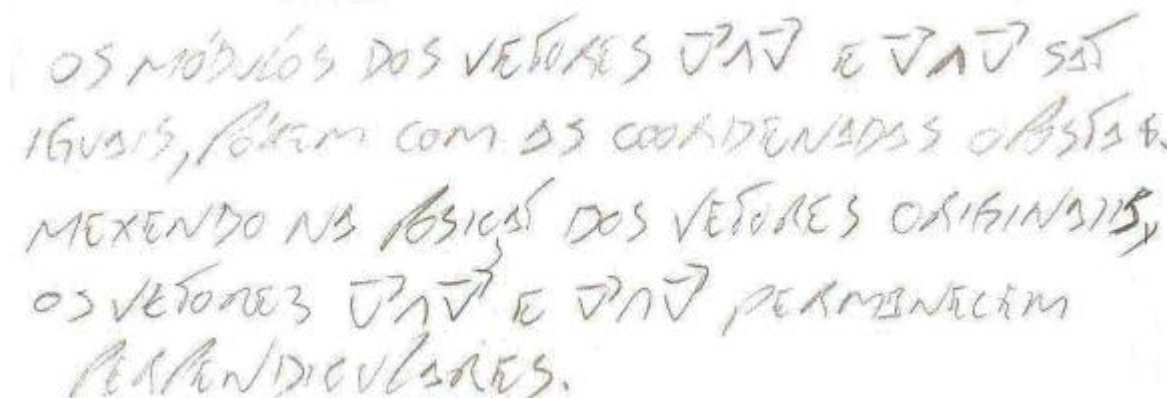 OS MÓDULOS DOS VETORES V⃗ΛU⃗ E U⃗ΛV⃗ SÃO
IGUAIS, PÓREM COM AS COORDENADAS OPOSTAS.
MEXENDO NA POSIÇÃO DOS VETORES ORIGINAIS,
OS VETORES V⃗ΛU⃗ E U⃗ΛV⃗ PERMANECEM
PERPENDICULARES.